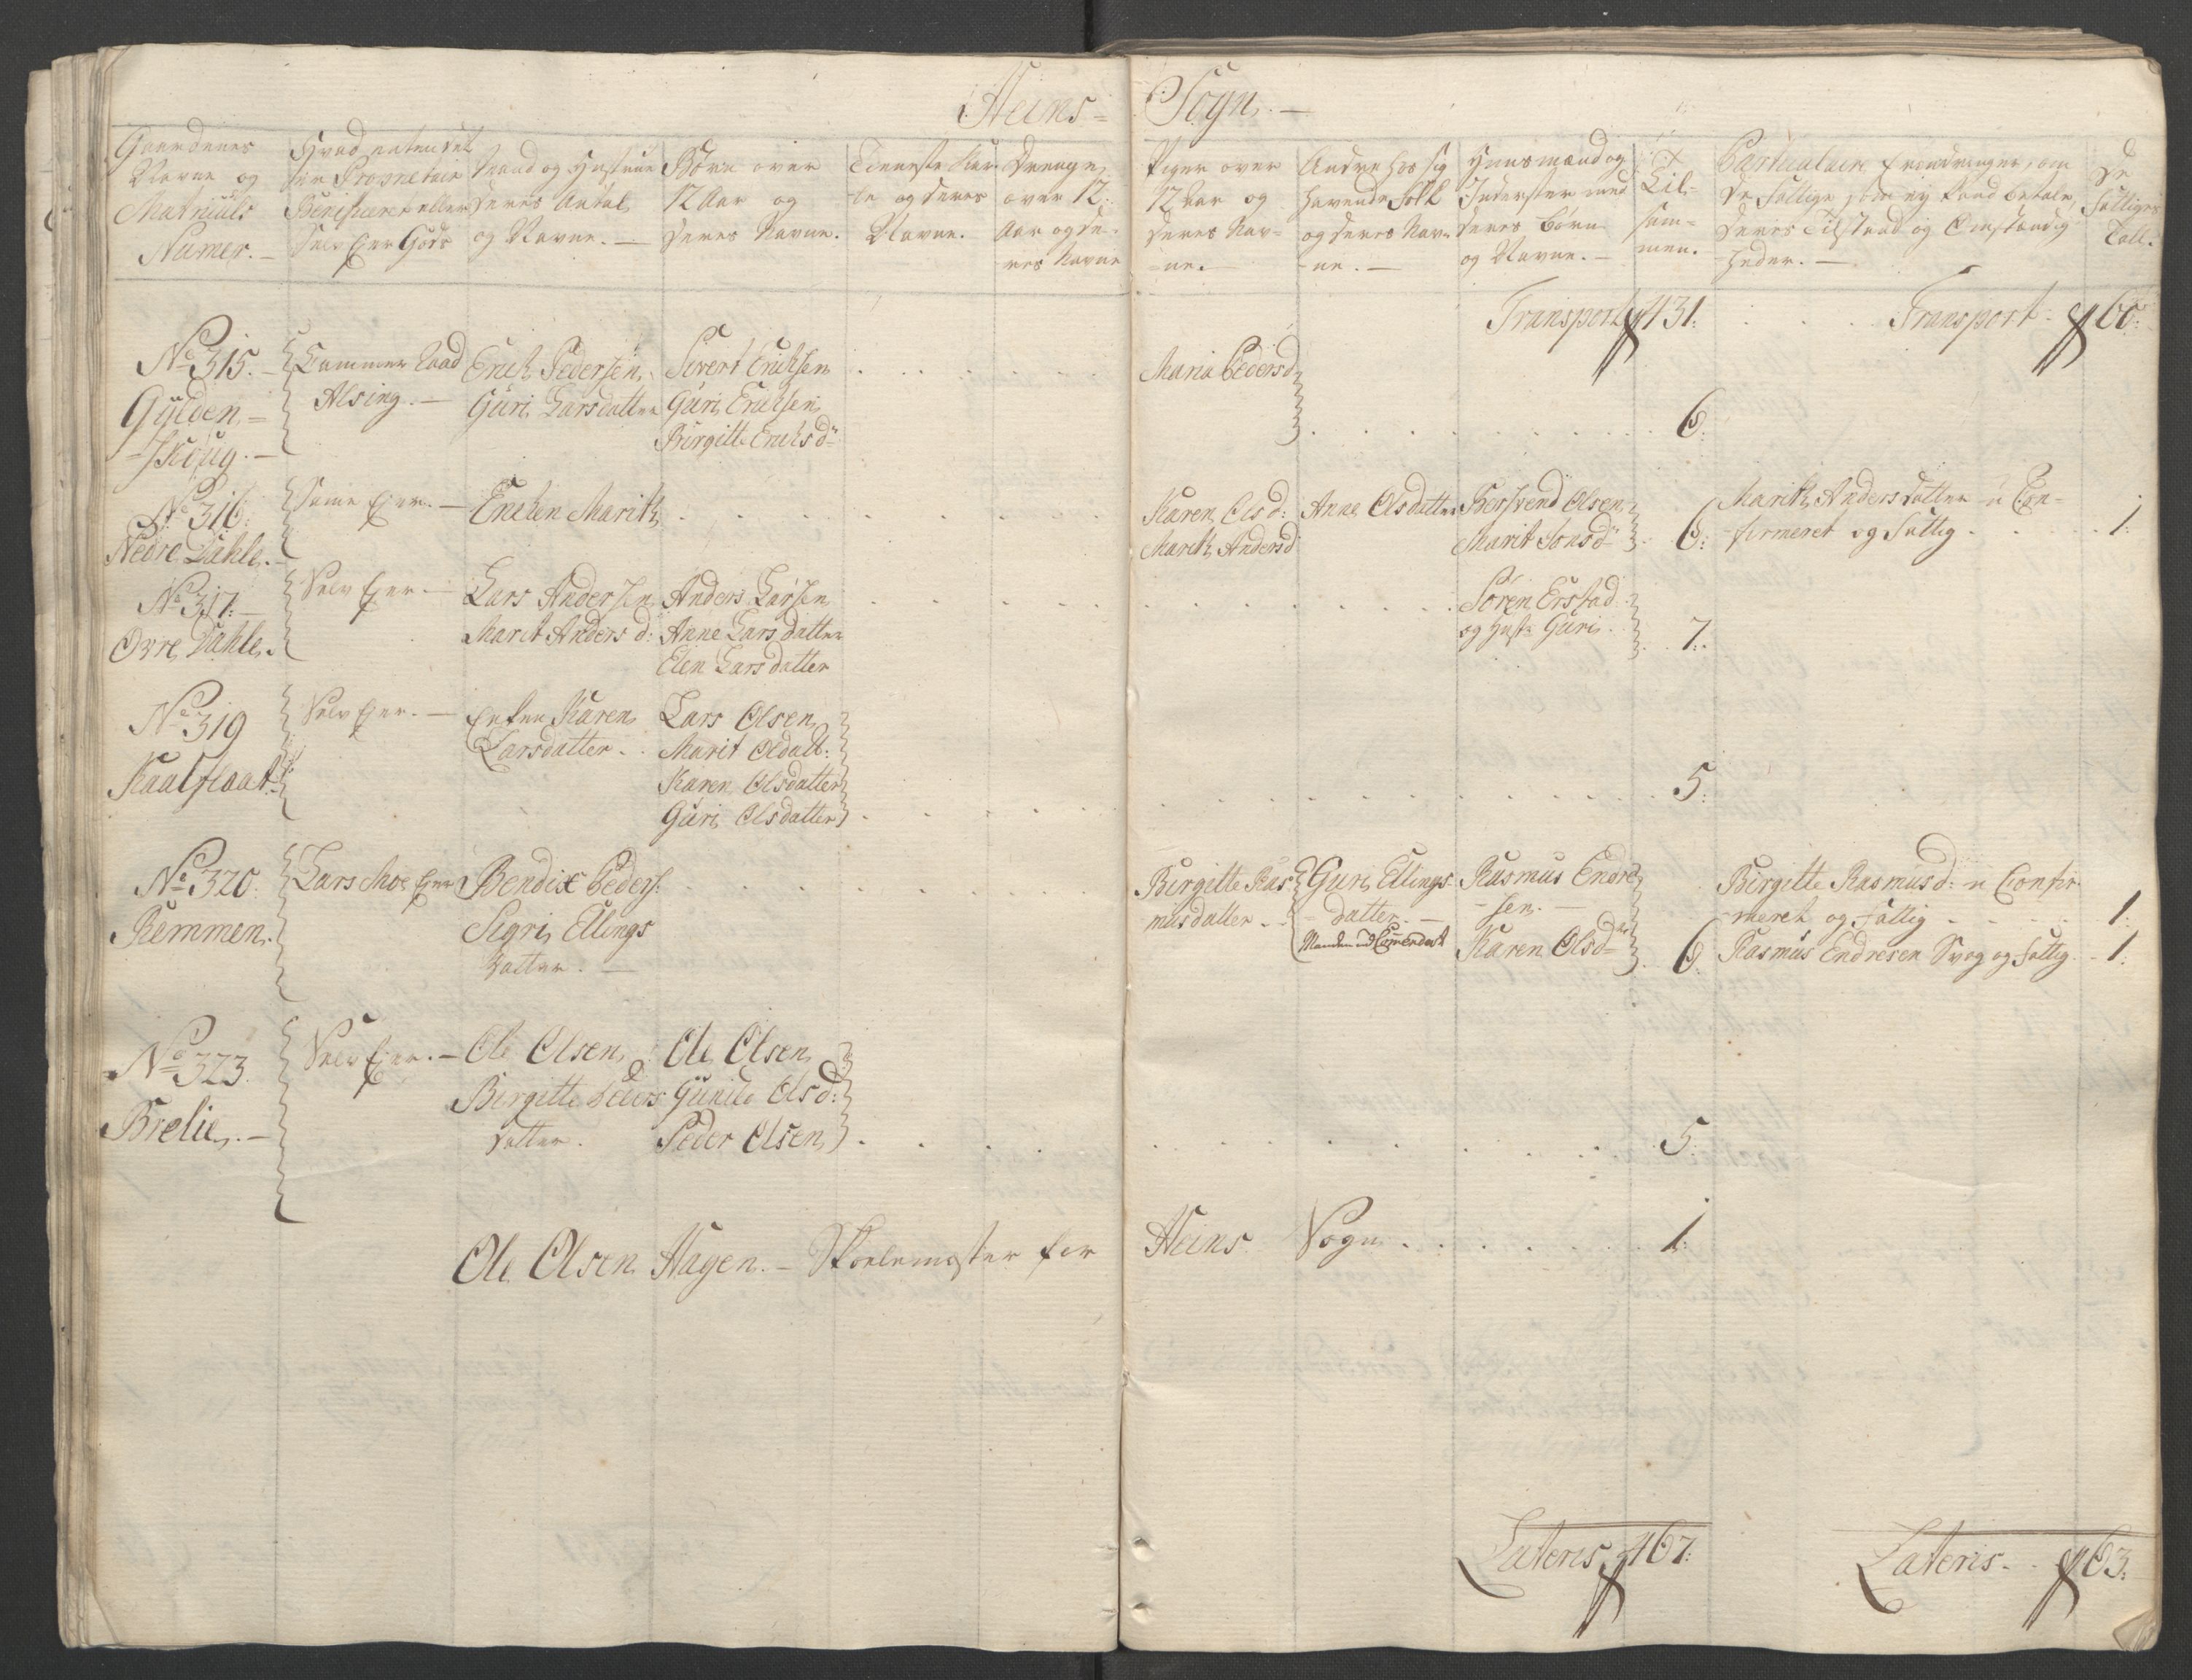 Heins=
Sogn. —
Gaardenes
Navne og
Matriculs
Numer. —
Hvad enten det
er Proprietair
Beneficeret eller
Selv Ejer Gods
Mand og Hustrue
deres Antal
og Navne. —
Børn over
12 Aar og
deres Navne.
Tieneste Kar-
le og deres
Navne.
Drenge
over 12:
Aar og de-
res Navne
Piger over
12 Aar og
deres Nav-
-ne. —
Andre hos sig
havende Folk
og deres Nav-
-ne. —
Huusmænd og
Inderster med
deres Børn
og Navne. —
Til-
sam-
men.
Particulaire Erindringer, om
de fattige som ej kand betale,
deres Tilstand og Omstændig-
-heder. —
De
Fattiges
Tall.
Transport 431:
Transport 60:
No 315. —
Gylden-
-skoug. —
Cammer Raad
Alsing. —
Erich Pedersen
Guri Larsdatter
Sivert Erichsen
Guri Erichsen
Birgitte Erichsd
Maria Pedersd
6:
No 316:
Nedre Dahle.
Same Ejer. —
Enchen Marith
Karen Olsd:
Marith Andersd
Anne Olsdatter
Bersvend Olsen
Marit Jonsd
6:
Marith Andersdatter u Con-
-firmeret og fattig 1:
No 317: —
Øvre Dahle.
Selv Ejer. —
Lars Andersen
Marit Andersd:
Anders Larsen
Anne Larsdatter
Elen Larsdatter
Søren Erstad
og Hust: Guri
7:
No 319
Kaalflaat
Selv Ejer. —
Enken Karen
Larsdatter
Lars Olsen
Marit Olsdatt:
Karen Olsdatter
Guri Olsdatter
5:
No 320:
Remmen.
Lars Moe Ejer
Bendix Peders:
Sigri Ellings
datter. —
Birgitte Ras-
musdatter
Guri Ellings-
-datter. —
Rasmus Endre
-sen. —
Karen Olsd
6:
Birgitte Rasmusd: u Confir-
-meret og fattig 1:
Rasmus Endresen Svag og fattig 1:
No 323
Brelie. —
Selv Ejer. —
Ole Olsen
Birgitte Peders
datter.
Ole Olsen
Gunild Olsd:
Peder Olsen
5:
Ole Olsen Hagen. — Skolemester for Heins Sogn 1:
Lateris 467:
Lateris 63: